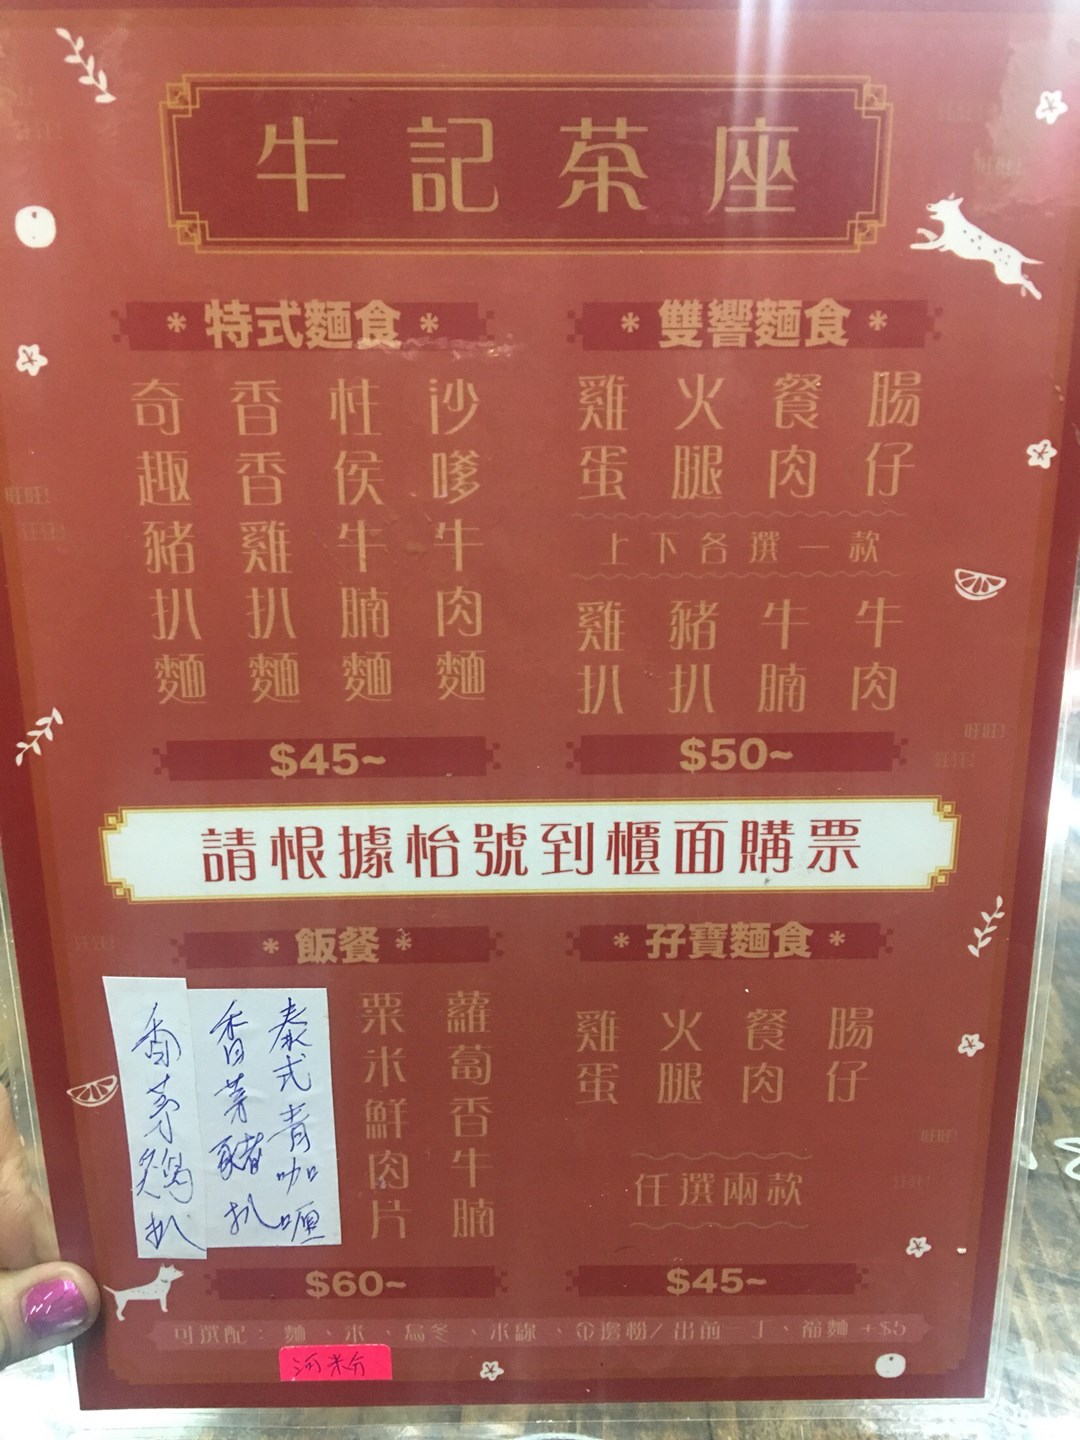 牛記茶座
* 特式麵食 *
沙嗲牛肉麵
柱侯牛腩麵
香香雞扒麵
奇趣豬扒麵
$45~
* 雙響麵食 *
腸仔
餐肉
火腿
雞蛋
上下各選一款
牛肉
牛腩
豬扒
雞扒
$50~
請根據枱號到櫃面購票
* 飯餐 *
蘿蔔香牛腩
粟米鮮肉片
泰式青咖喱
香茅豬扒
香茅鷄扒
$60~
* 孖寶麵食 *
腸仔
餐肉
火腿
雞蛋
任選兩款
$45~
可選配：麵、米、烏冬、米線、金邊粉/出前一丁、稻麵 +$5
河粉
旺旺!
旺旺!
旺旺!
旺旺!